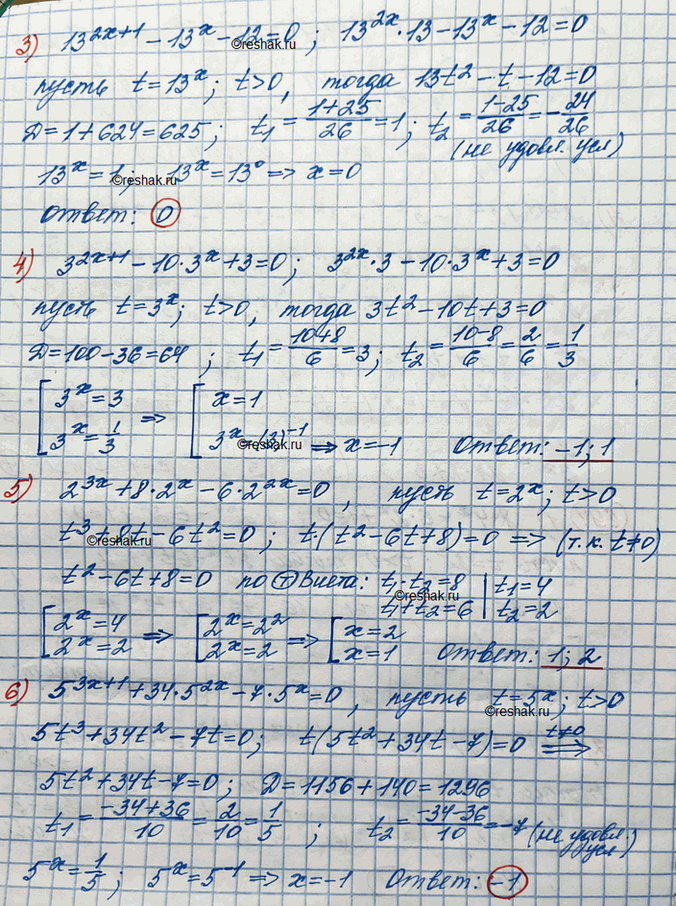 3) 13^(2x+1) − 13^x − 12 = 0 ; 13^(2x)·13 − 13^x − 12 = 0
©reshak.ru
пусть t = 13^x ; t > 0, тогда 13t² − t − 12 = 0
Д = 1 + 624 = 625 ; t₁ = (1+25)/26 = 1 ; t₂ = (1−25)/26 = −24/26
(не удовл. усл)
13^x = 1 ; 13^x = 13^0 => x = 0
©reshak.ru
ответ: 0
4) 3^(2x+1) − 10·3^x + 3 = 0 ; 3^(2x)·3 − 10·3^x + 3 = 0
пусть t = 3^x ; t > 0, тогда 3t² − 10t + 3 = 0
Д = 100 − 36 = 64 ; t₁ = (10+8)/6 = 3 ; t₂ = (10−8)/6 = 2/6 = 1/3
[ 3^x = 3 => [ x = 1
3^x = 1/3 3^x = (3)^−1 => x = −1 Ответ: −1; 1
5) 2^(3x) + 8·2^x − 6·2^(2x) = 0 , пусть t = 2^x ; t > 0
t³ + 8t − 6t² = 0 ; t·(t² − 6t + 8) = 0 => (т.к. t ≠ 0)
©reshak.ru
t² − 6t + 8 = 0 по Т Виета: t₁·t₂ = 8 | t₁ = 4
©reshak.ru
t₁ + t₂ = 6 | t₂ = 2
[ 2^x = 4 => [ 2^x = 2² => [ x = 2
2^x = 2 2^x = 2 x = 1 Ответ: 1; 2
6) 5^(3x+1) + 34·5^(2x) − 7·5^x = 0 , пусть t = 5^x ; t > 0
©reshak.ru
5t³ + 34t² − 7t = 0 ; t(5t² + 34t − 7) = 0 t≠0 =>
5t² + 34t − 7 = 0 ; Д = 1156 + 140 = 1296
t₁ = (−34+36)/10 = 2/10 = 1/5 ; t₂ = (−34−36)/10 = −7 (не удовл. усл)
5^x = 1/5 ; 5^x = 5^−1 => x = −1 Ответ: −1